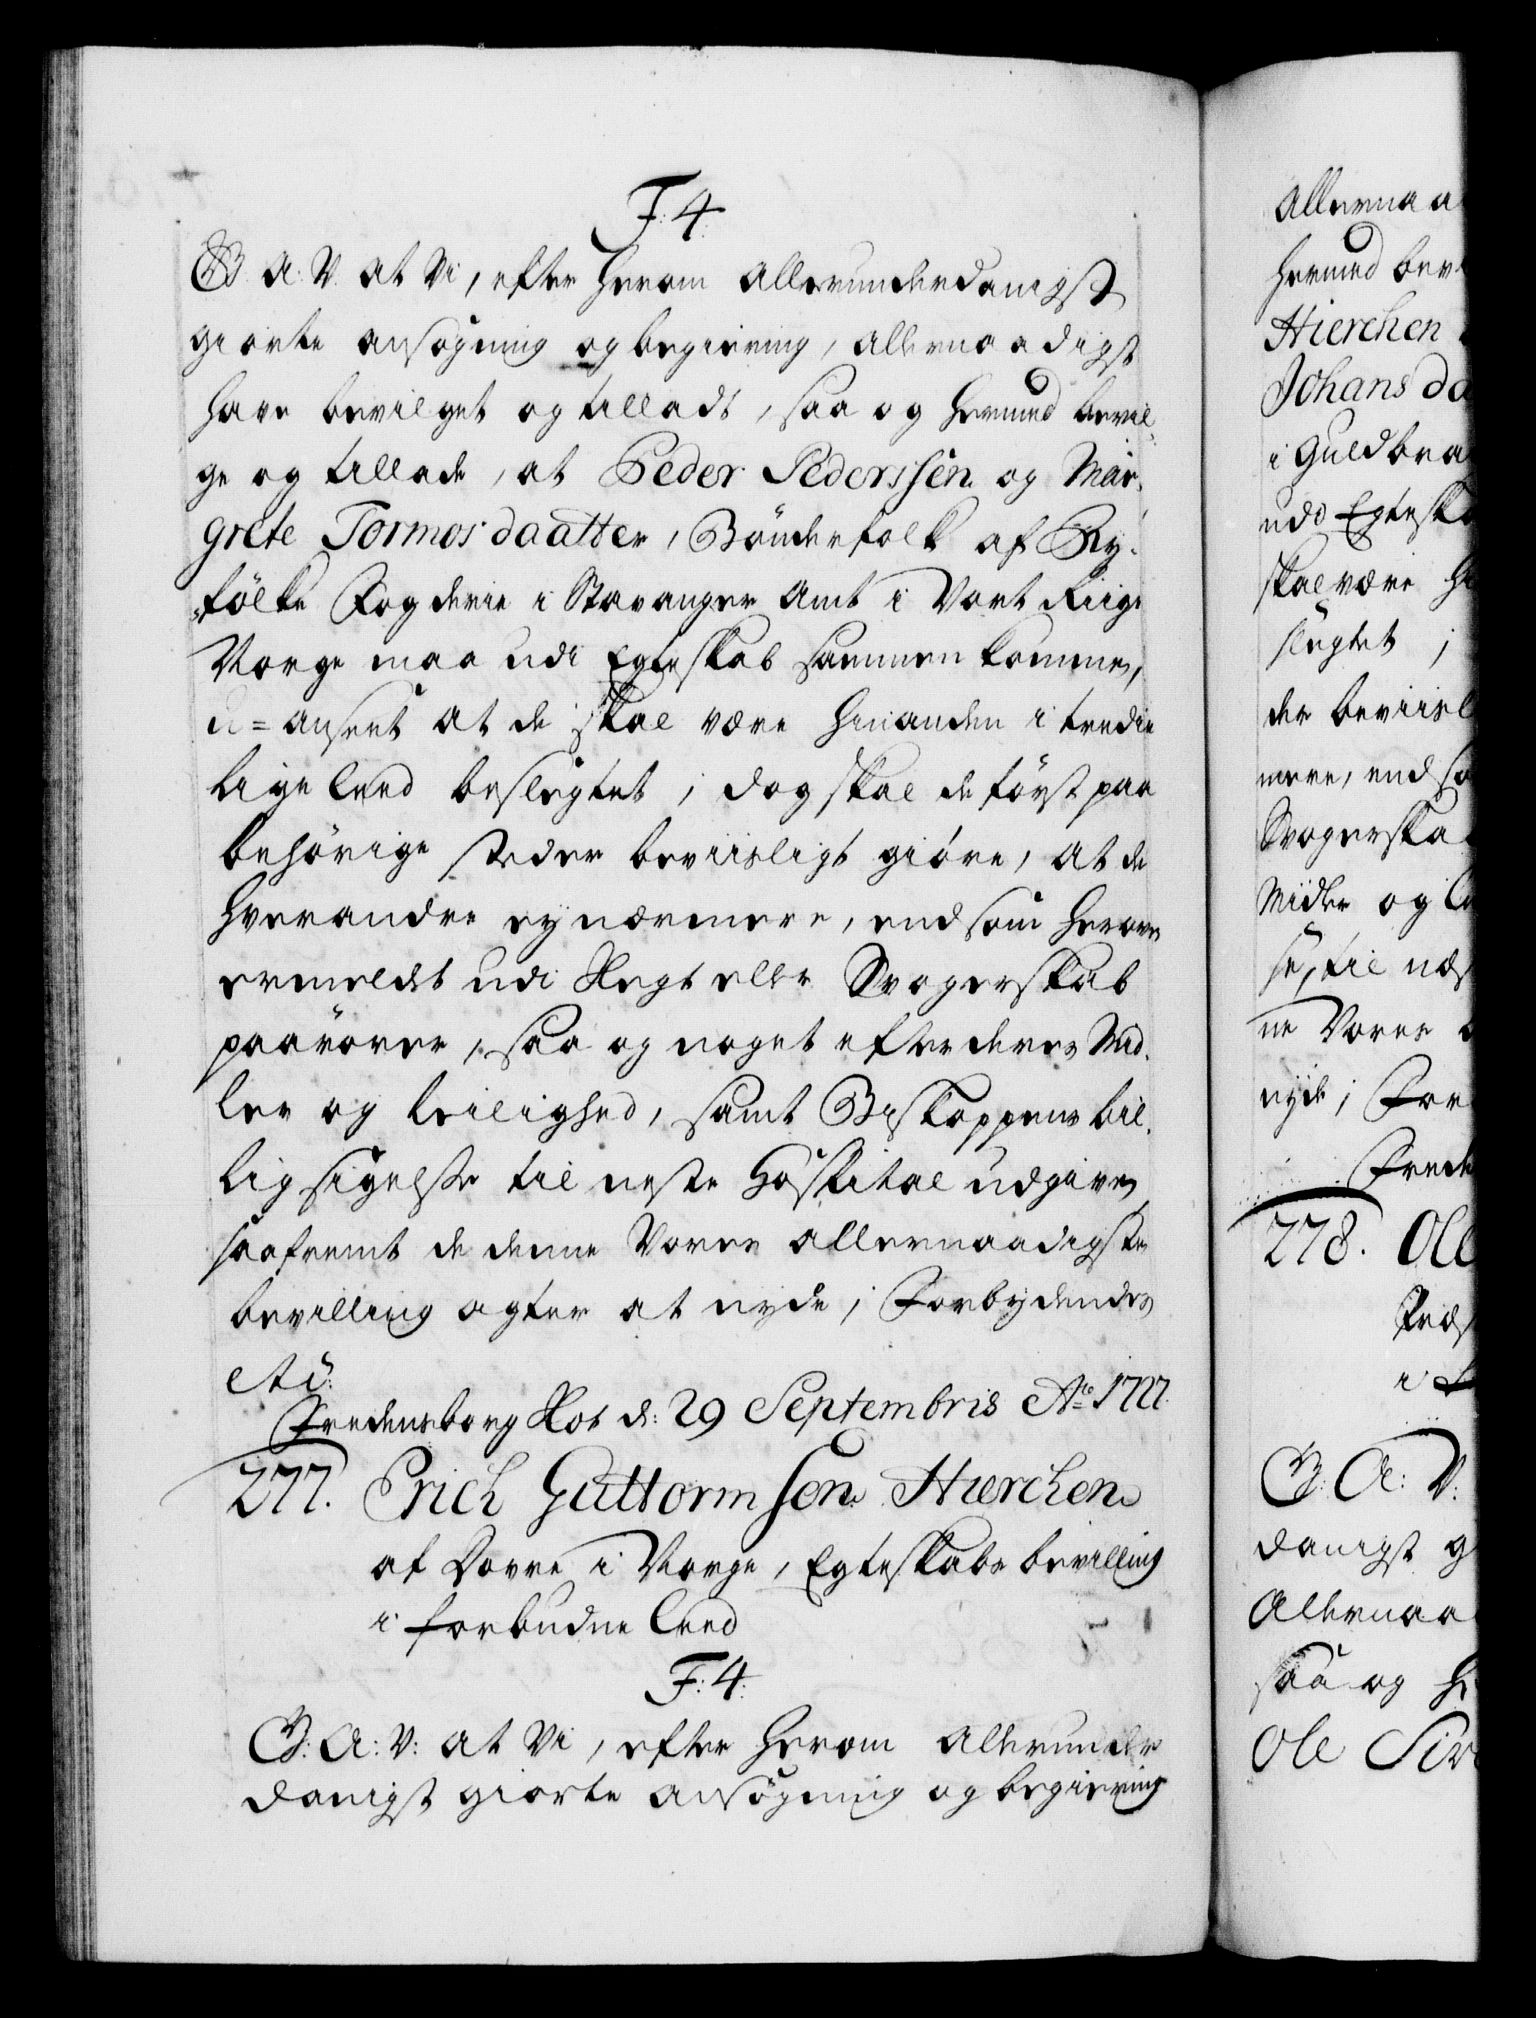 F: 4.
G. A: V. at Vi, efter herom allerunderdanigst
giorte ansøgning og begiering, allernaadigst
have bevilget og tilladt, saa og hermed bevil-
ge og tillade, at Peder Pederssen og Mar-
grete Tormosdaatter, Bønderfolk af Ry-
fölke Fogderie i Stavanger Amt i Vort Riige
Norge maa udi Egteskab sammen komme,
u=anseet at de skal være hinanden i tredie
lige Leed beslegtet; dog skal de først paa
behörige steder beviisligt giöre, at de
hverandre ey nærmere, end som herover
ermeldt udi Slegt eller Svogerskab
paarörer, saa og noget efter deres Mid-
ler og leilighed, samt Biskoppens bil-
lig sigelse til neste Hospital udgive,
saafremt de denne Vores allernaadigste
bevilling agter at nyde; Forbydendes
etc:
Fredensborg Slot d: 29 Septembris Ao 1727.
277. Erich Guttormsen Hierchen
af Dovre i Norge, Egteskabs bevilling
i forbudne Leed
F: 4.
G: A: V: at Vi, efter herom allerunder
danigst giorte ansøgning og begiering
allernaa
hermed bev
Hierchen
Johansda
i Guldbra
udi Egteska
skal være hi
slegtet;
der beviisl
mere, end so
Svogerska
Midler og
se, til næs
ne Vores
nyde; For
Frede
278. Ole
i
G: A: V:
danigst g
Allernaa
saa og he
Ole Siv